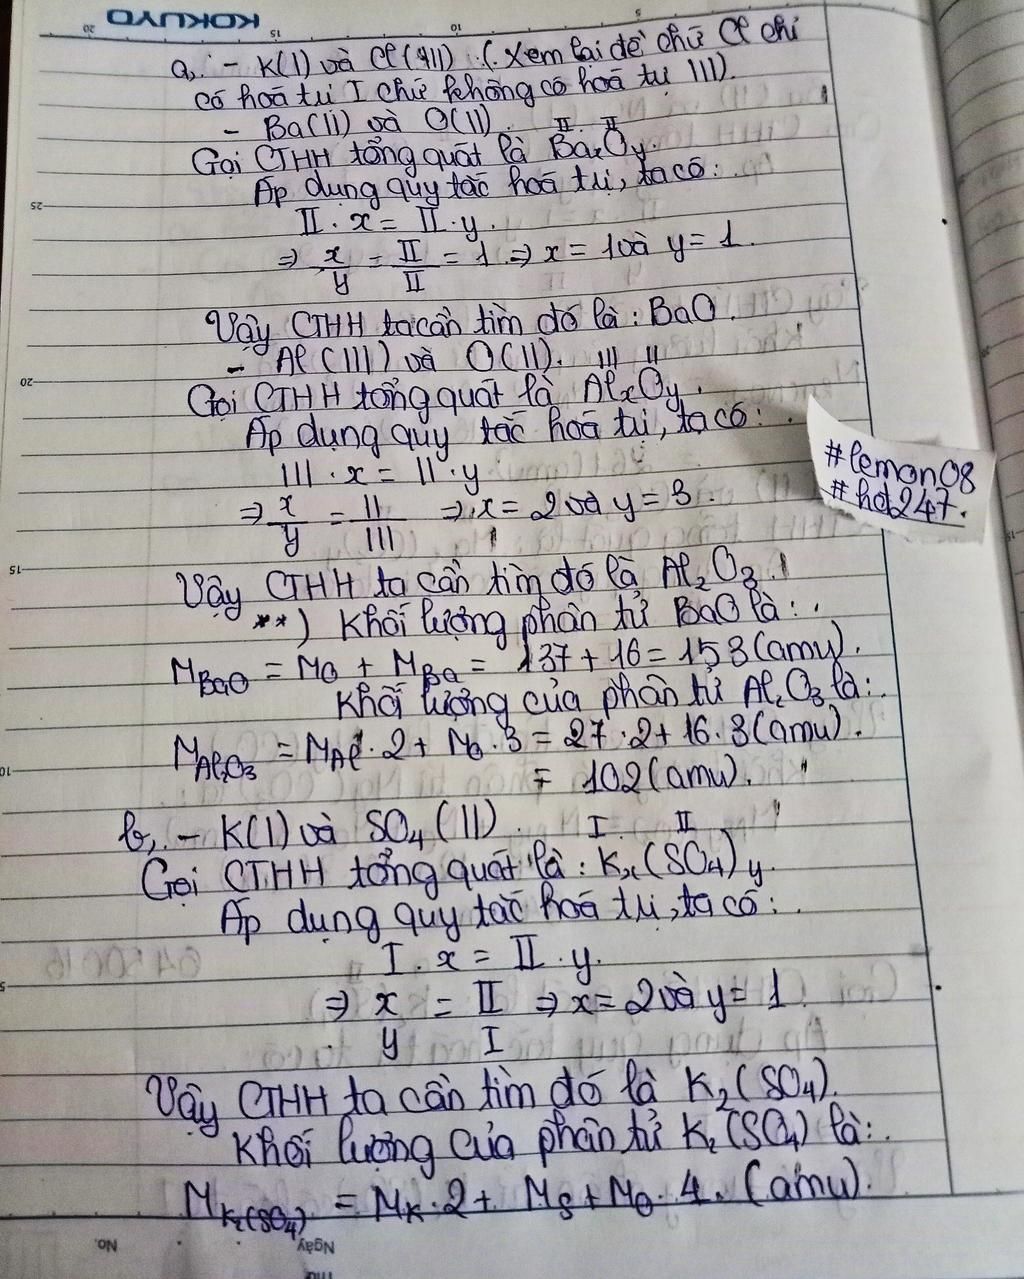 KOKUYO
a, - K(I) và Cl(III) (Xem lại đề chứ Cl chỉ
có hoá trị I chứ không có hoá trị III).
- Ba(II) và O(II).
II II
Gọi CTHH tổng quát là BaxOy.
Áp dụng quy tắc hoá trị, ta có:
II . x = II . y.
=> x/y = II/II = 1 => x = 1 và y = 1.
Vậy CTHH ta cần tìm đó là: BaO.
- Al (III) và O(II).
III II
Gọi CTHH tổng quát là AlxOy.
Áp dụng quy tắc hoá trị, ta có:
III . x = II . y
=> x/y = II/III => x = 2 và y = 3.
#lemon08
#hd247.
Vậy CTHH ta cần tìm đó là Al2O3.
**) Khối lượng phân tử BaO là:
MBaO = MO + MBa = 137 + 16 = 153 (amu).
Khối lượng của phân tử Al2O3 là:
MAl2O3 = MAl . 2 + MO . 3 = 27 . 2 + 16 . 3 (amu).
= 102 (amu).
b, - K(I) và SO4 (II)
I II
Gọi CTHH tổng quát là: Kx(SO4)y.
Áp dụng quy tắc hoá trị, ta có:
I . x = II . y.
=> x/y = II/I => x = 2 và y = 1
Vậy CTHH ta cần tìm đó là K2(SO4).
Khối lượng của phân tử K2(SO4) là:
MK2(SO4) = MK . 2 + MS + MO . 4. (amu).
No.
Ngày